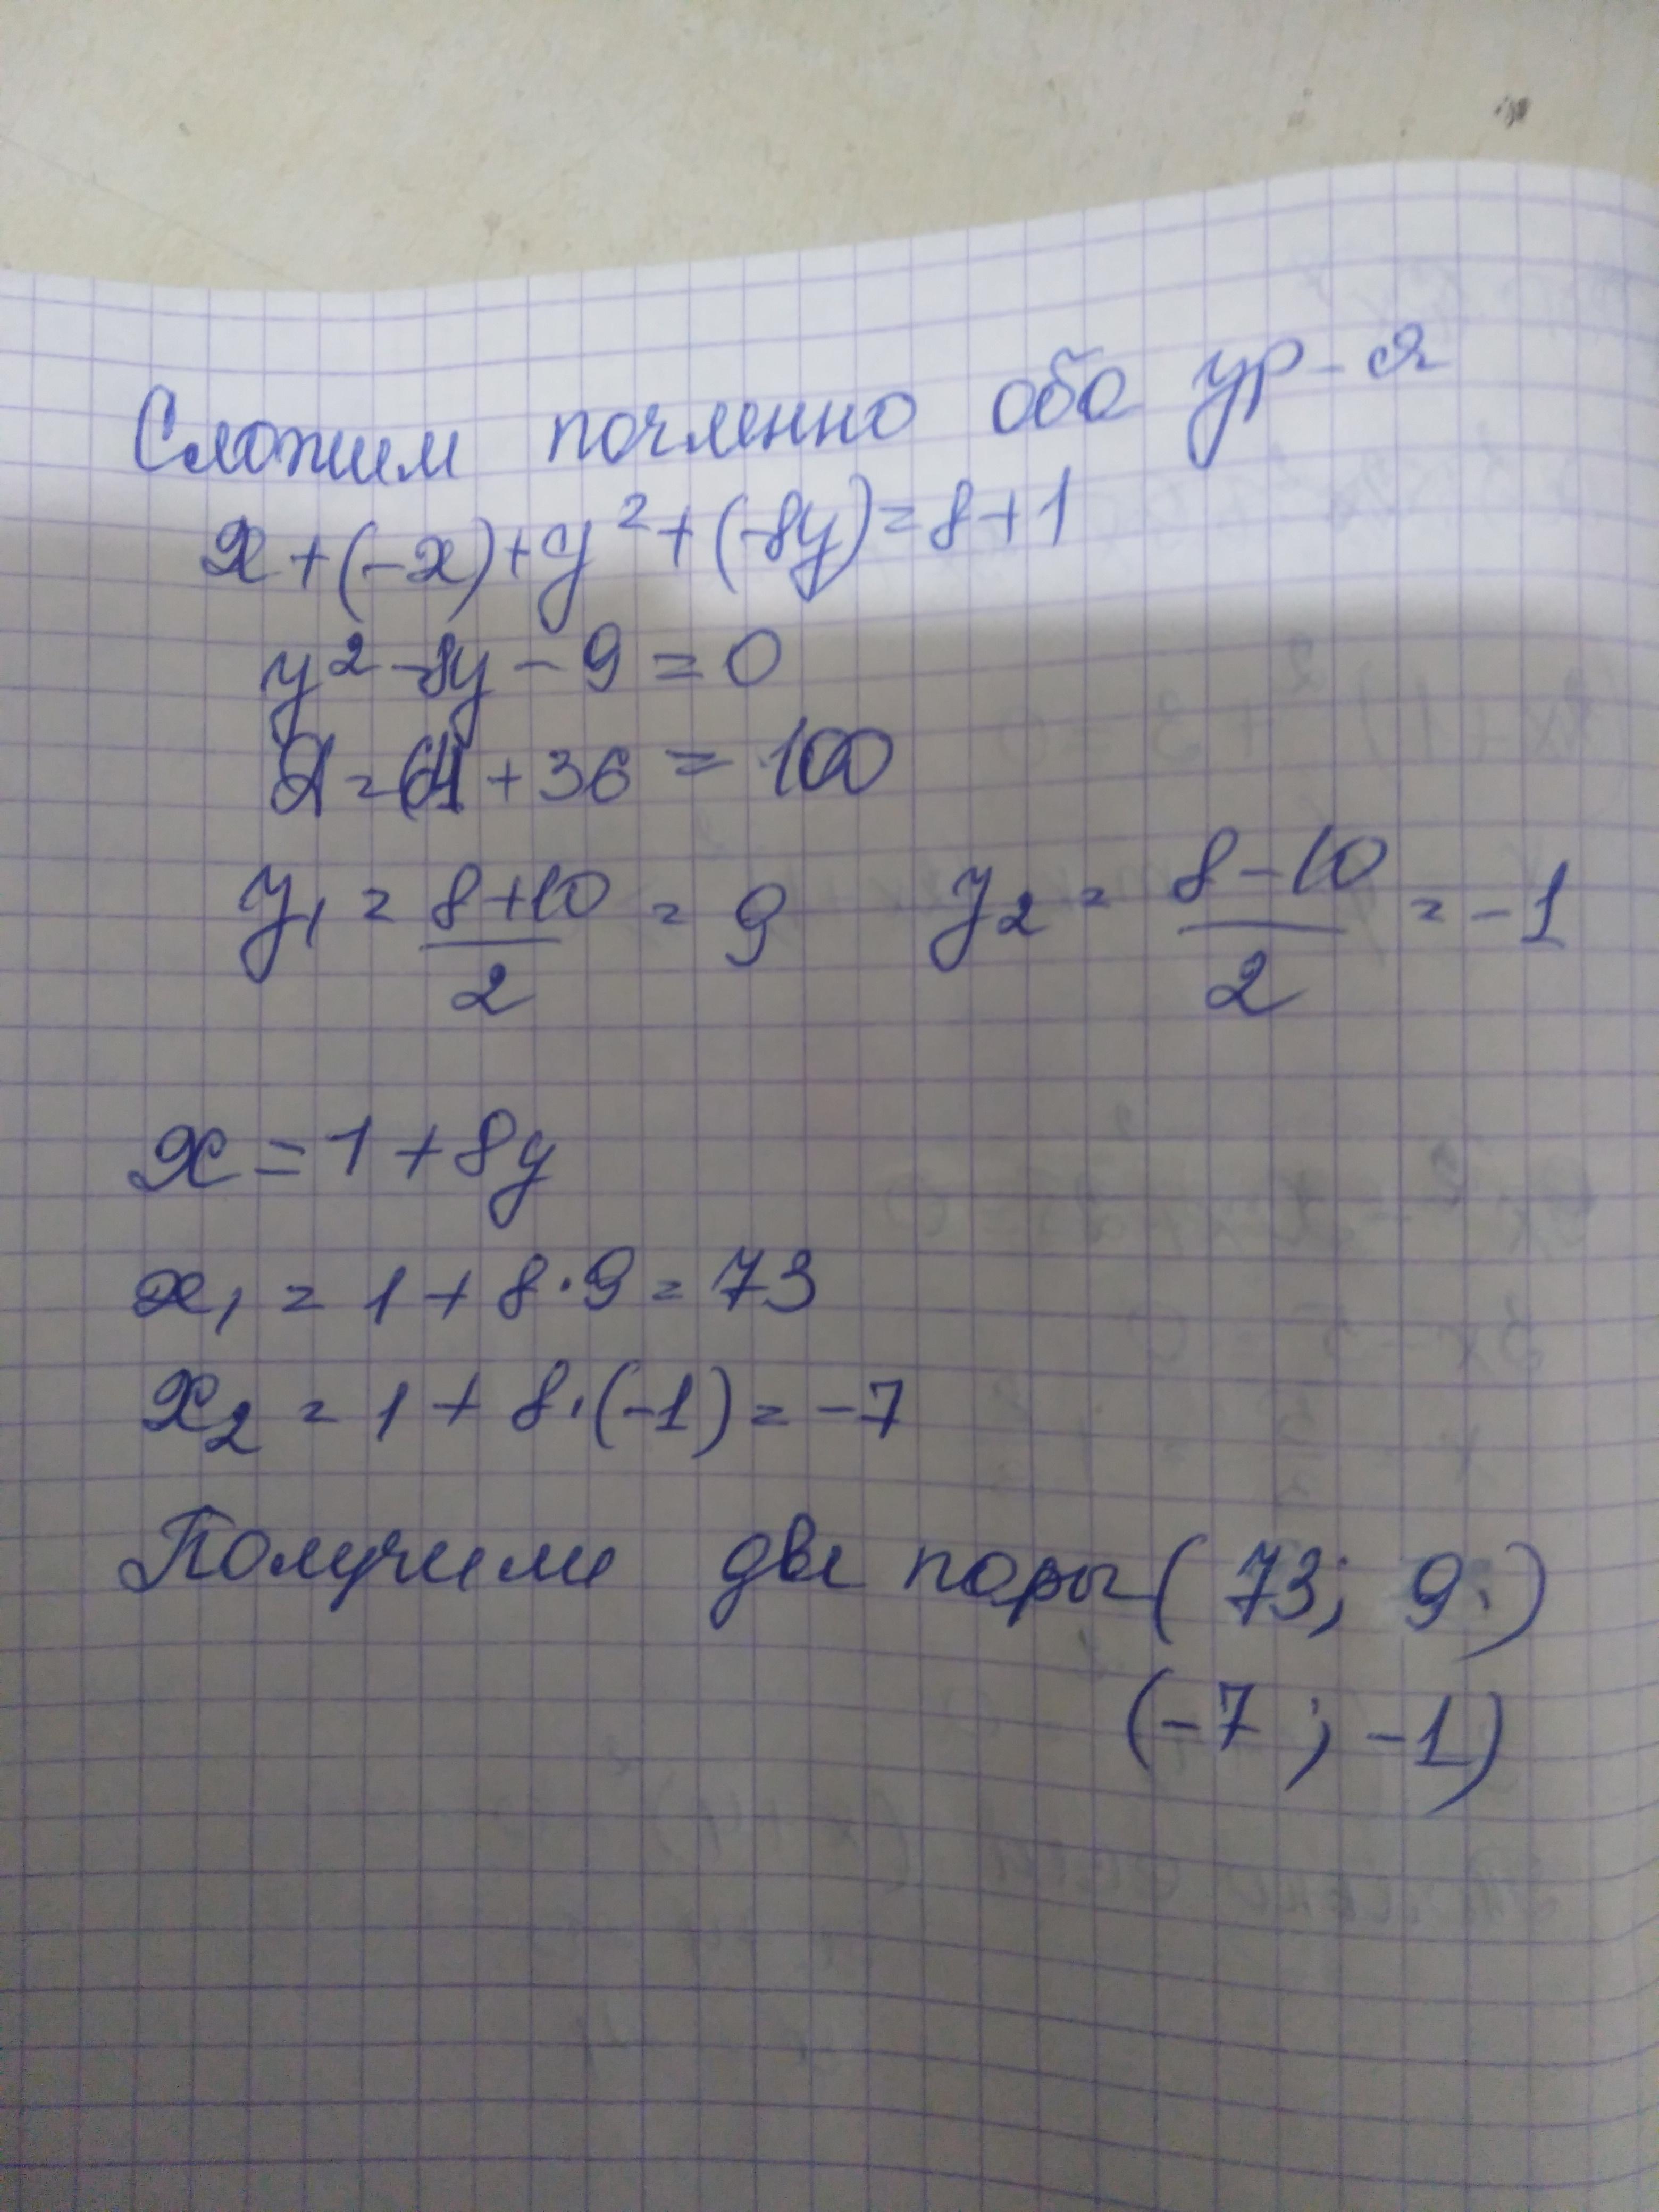 Сложим почленно оба ур-я
x+(-x)+y²+(-8y)=8+1
y²-8y-9=0
D=64+36=100
y₁=(8+10)/2=9 y₂=(8-10)/2=-1
x=1+8y
x₁=1+8·9=73
x₂=1+8·(-1)=-7
Получили две пары (73; 9)
(-7; -1)